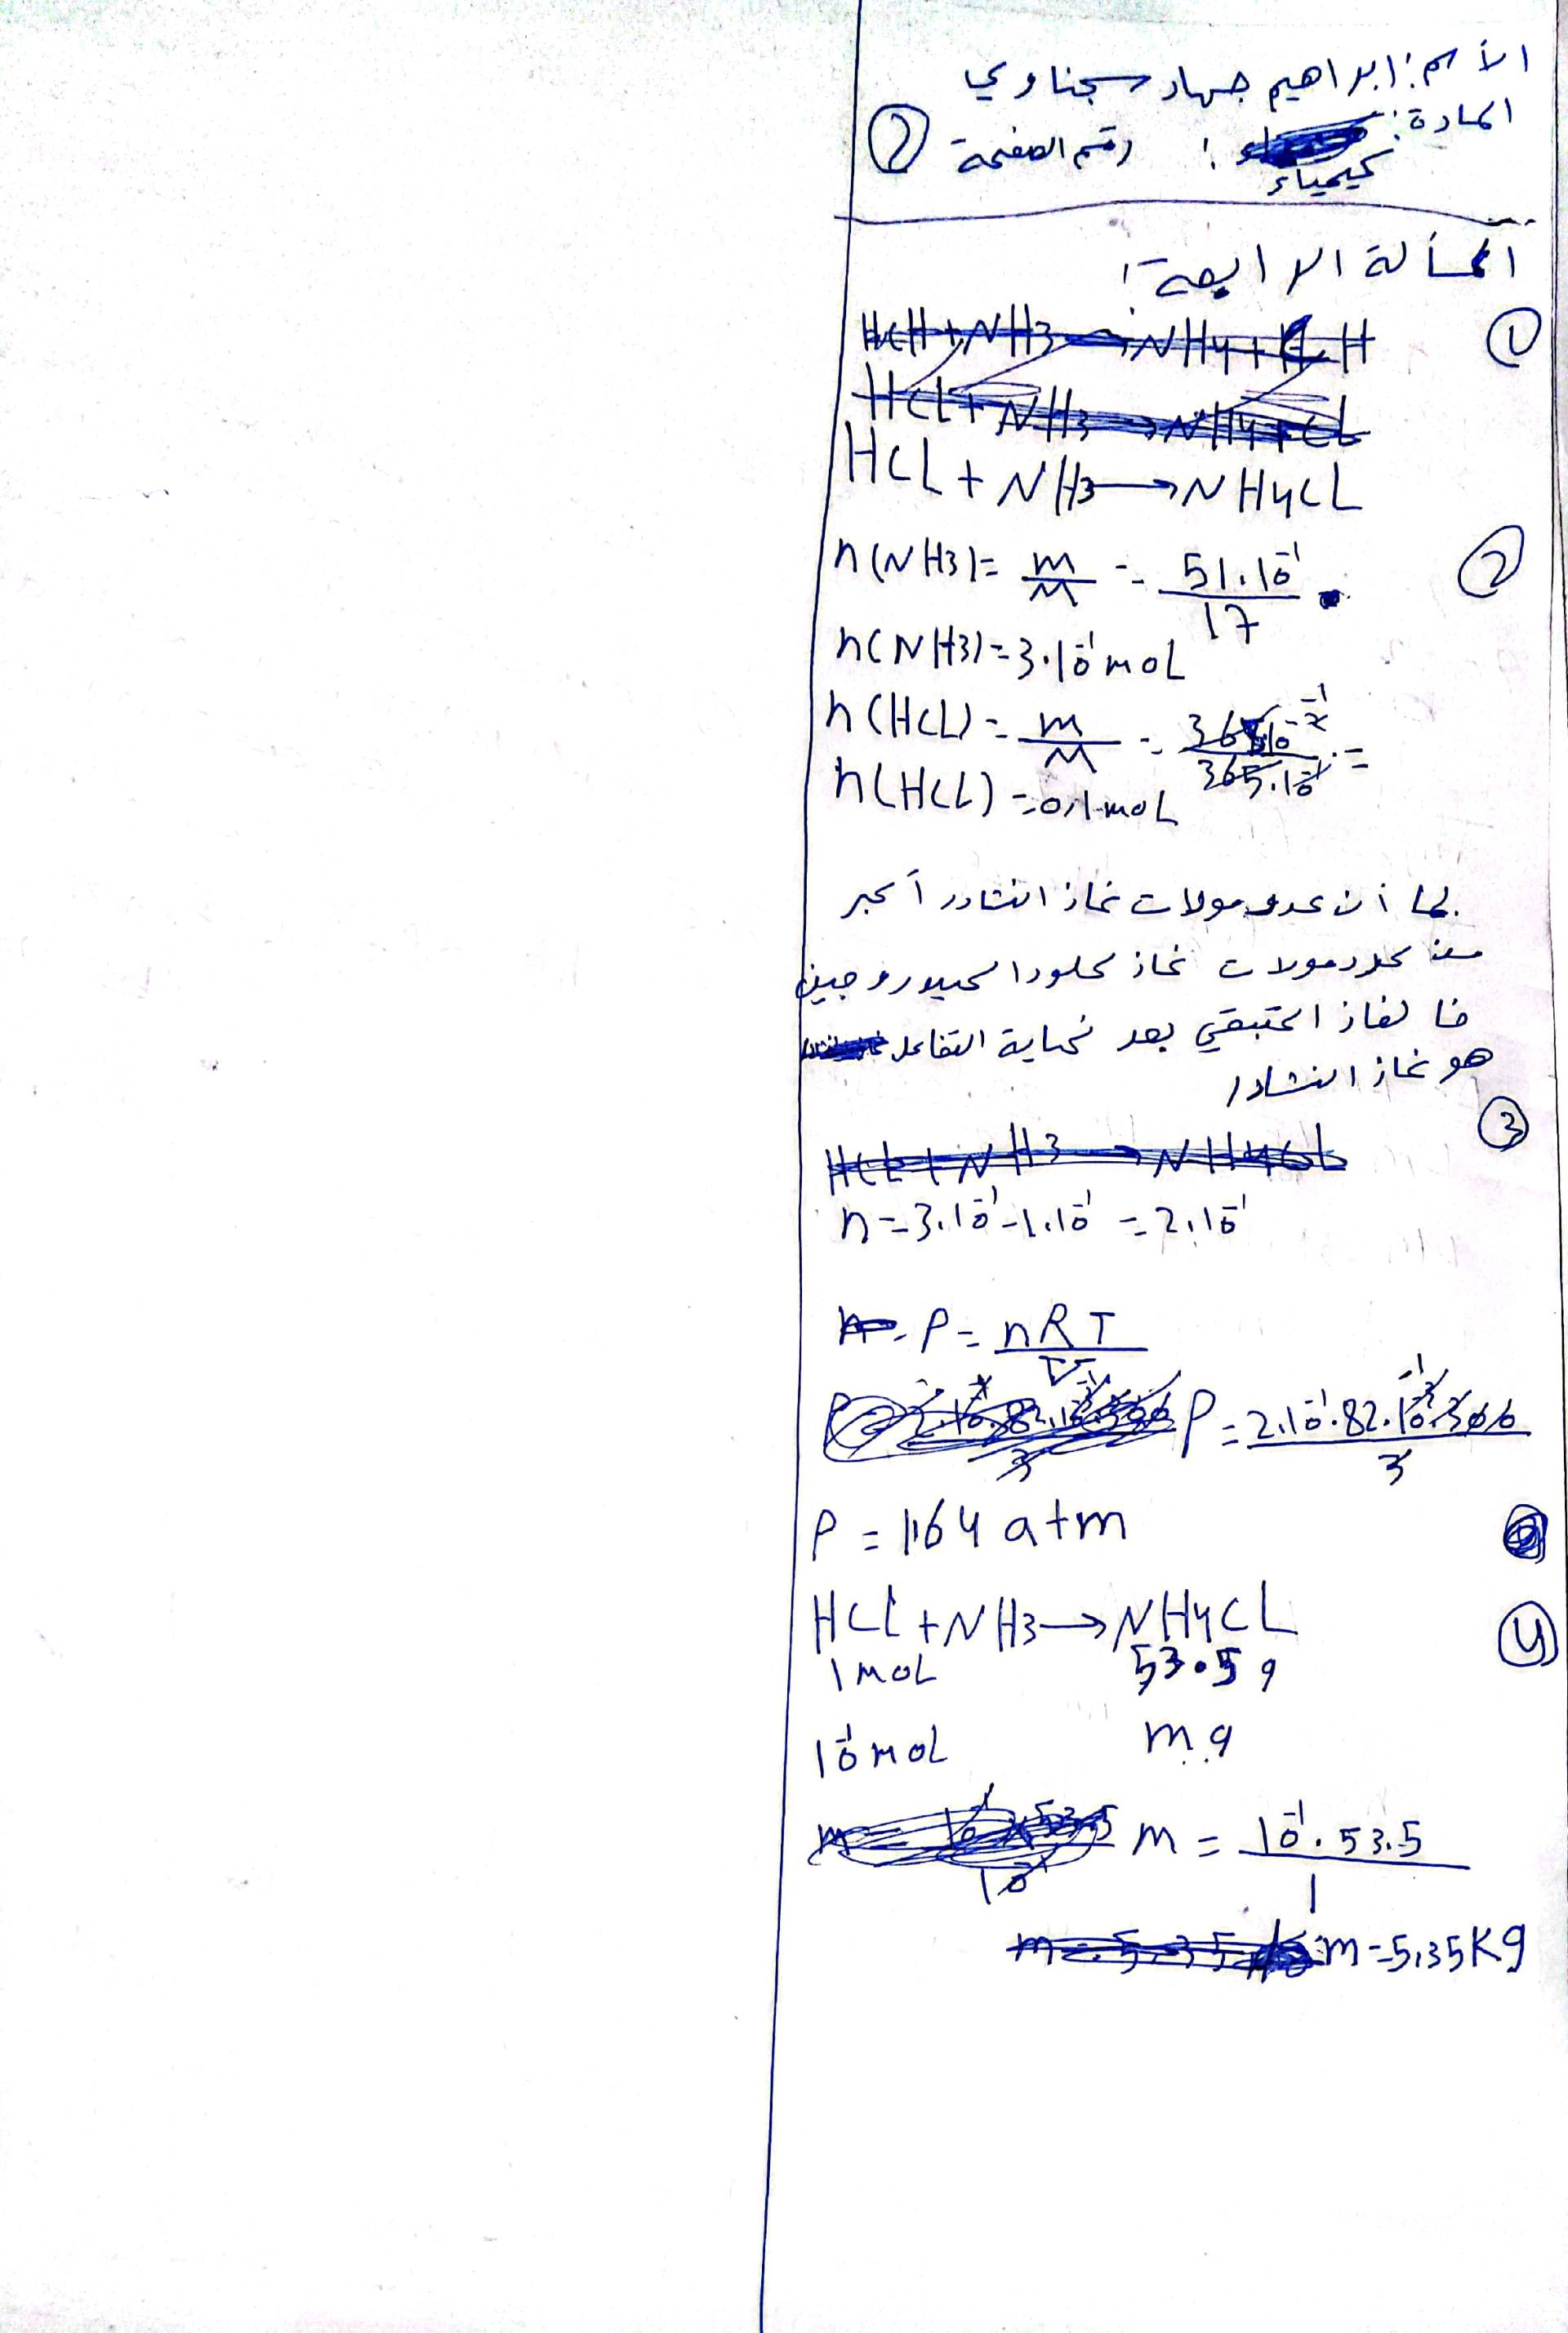 الأسم: ابراهيم جهاد سجناوي
المادة:
كيمياء
رقم الصفحة: 2
المسألة الرابعة:
1
HCl + NH3 → NH4Cl
2
n(NH3) = m/M = 51.10⁻¹/17
n(NH3) = 3.10⁻¹ mol
n(HCl) = m/M = 365.10⁻²/365.10⁻¹ =
n(HCl) = 0,1 mol
بما أن عدد مولات غاز النشادر أكبر
من عدد مولات غاز كلور الهيدروجين
فالغاز المتبقي بعد نهاية التفاعل
هو غاز النشادر
3
n = 3.10⁻¹ - 1.10⁻¹ = 2.10⁻¹
P = nRT/V
P = 2.10⁻¹.82.10⁻³.300/3
P = 1.64 atm
4
HCl + NH3 → NH4Cl
1 mol 53.5 g
10⁻¹ mol m g
m = 10⁻¹.53.5/1
m = 5,35 Kg